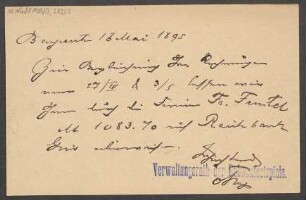 Bayreuth 18 Mai 1895
Zur Begleichung Ihrer Rechnungen
vom 27/IV & 3/5 lassen wir
Ihnen durch die Firma Fr. Feustel
M 1083.70 auf Reichsbank
Giro überweisen.
Hochachtend
Verwaltungsrath der Bühnenfestspiele.